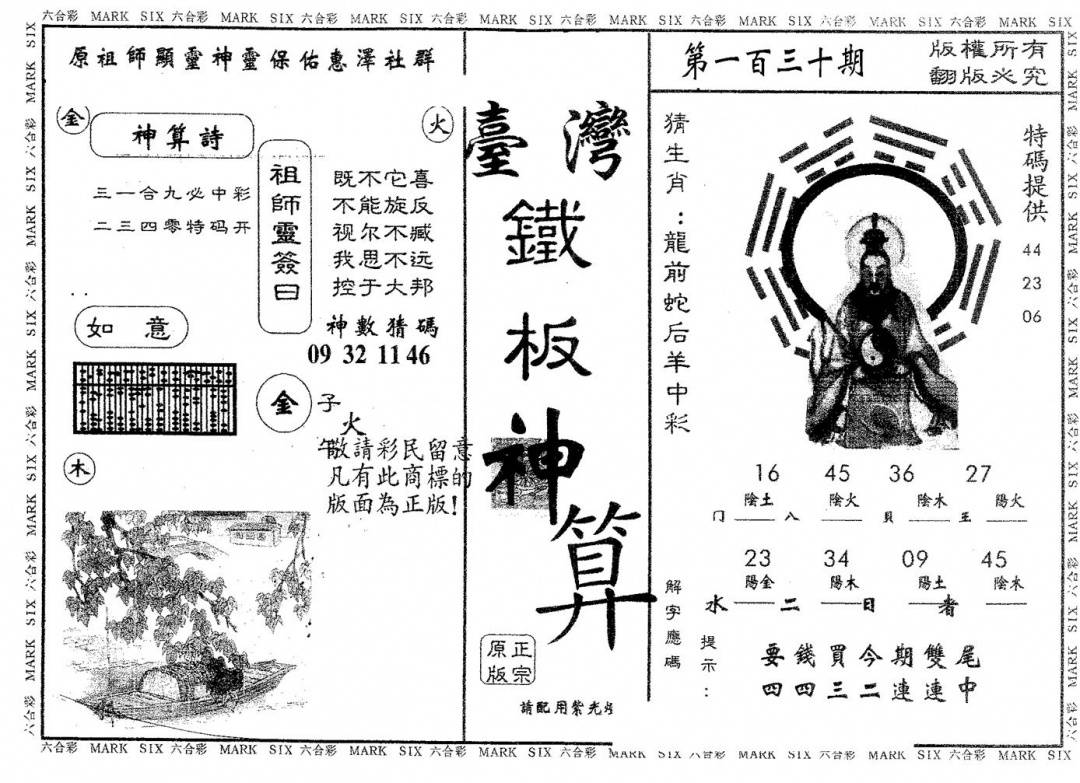 六合彩 MARK SIX 六合彩 MARK SIX 六合彩 MARK SIX 六合彩 MARK SIX 六合彩 MARK SIX 六合彩 MARK SIX 六合彩 MARK SIX 六合彩 MARK SIX
原祖師顯靈神靈保佑惠澤社群
金
神算詩
火
三一合九必中彩
二三四零特码开
祖師靈簽曰
既不它喜
不能旋反
视尔不臧
我思不远
控于大邦
神數猜碼
09 32 11 46
如意
金
子
火
午
敬請彩民留意
凡有此商標的
版面為正版!
木
臺灣
鐵板神算
正宗
原版
請配用紫光
第一百三十期
版權所有
翻版必究
猜生肖:龍前蛇后羊中彩
特碼提供
44
23
06
16 45 36 27
陰土 陰火 陰木 陽火
门 八 貝 王
23 34 09 45
陽金 陽木 陽土 陰水
水 二 日 者
解字應碼
提示:
要錢買今期雙尾
四四三二連連中
六合彩 MARK SIX 六合彩 MARK SIX 六合彩 MARK SIX 六合彩 MARK SIX 六合彩 MARK SIX 六合彩 MARK SIX 六合彩 MARK SIX 六合彩 MARK SIX